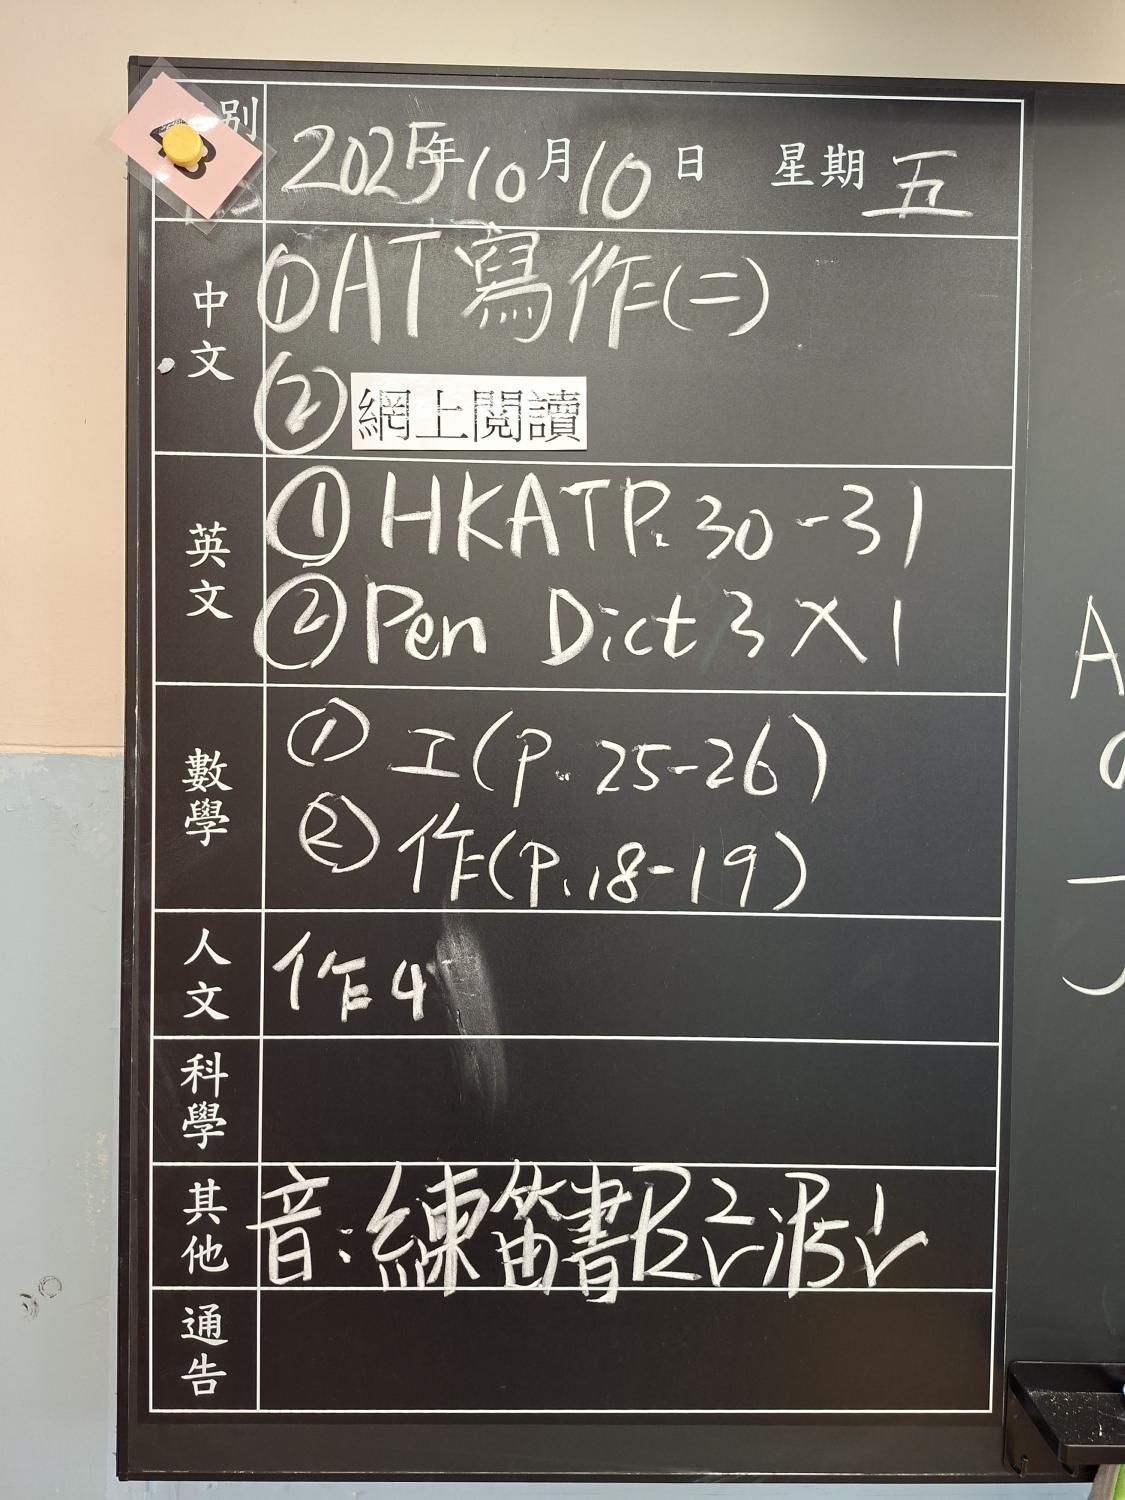 別
2025年10月10日 星期五
中文
①AT寫作(二)
②網上閱讀
英文
①HKATP.30-31
②Pen Dict 3 X 1
數學
① 工(P. 25-26)
② 作(P.18-19)
人文
作4
科學
其他
音:練笛書
通告